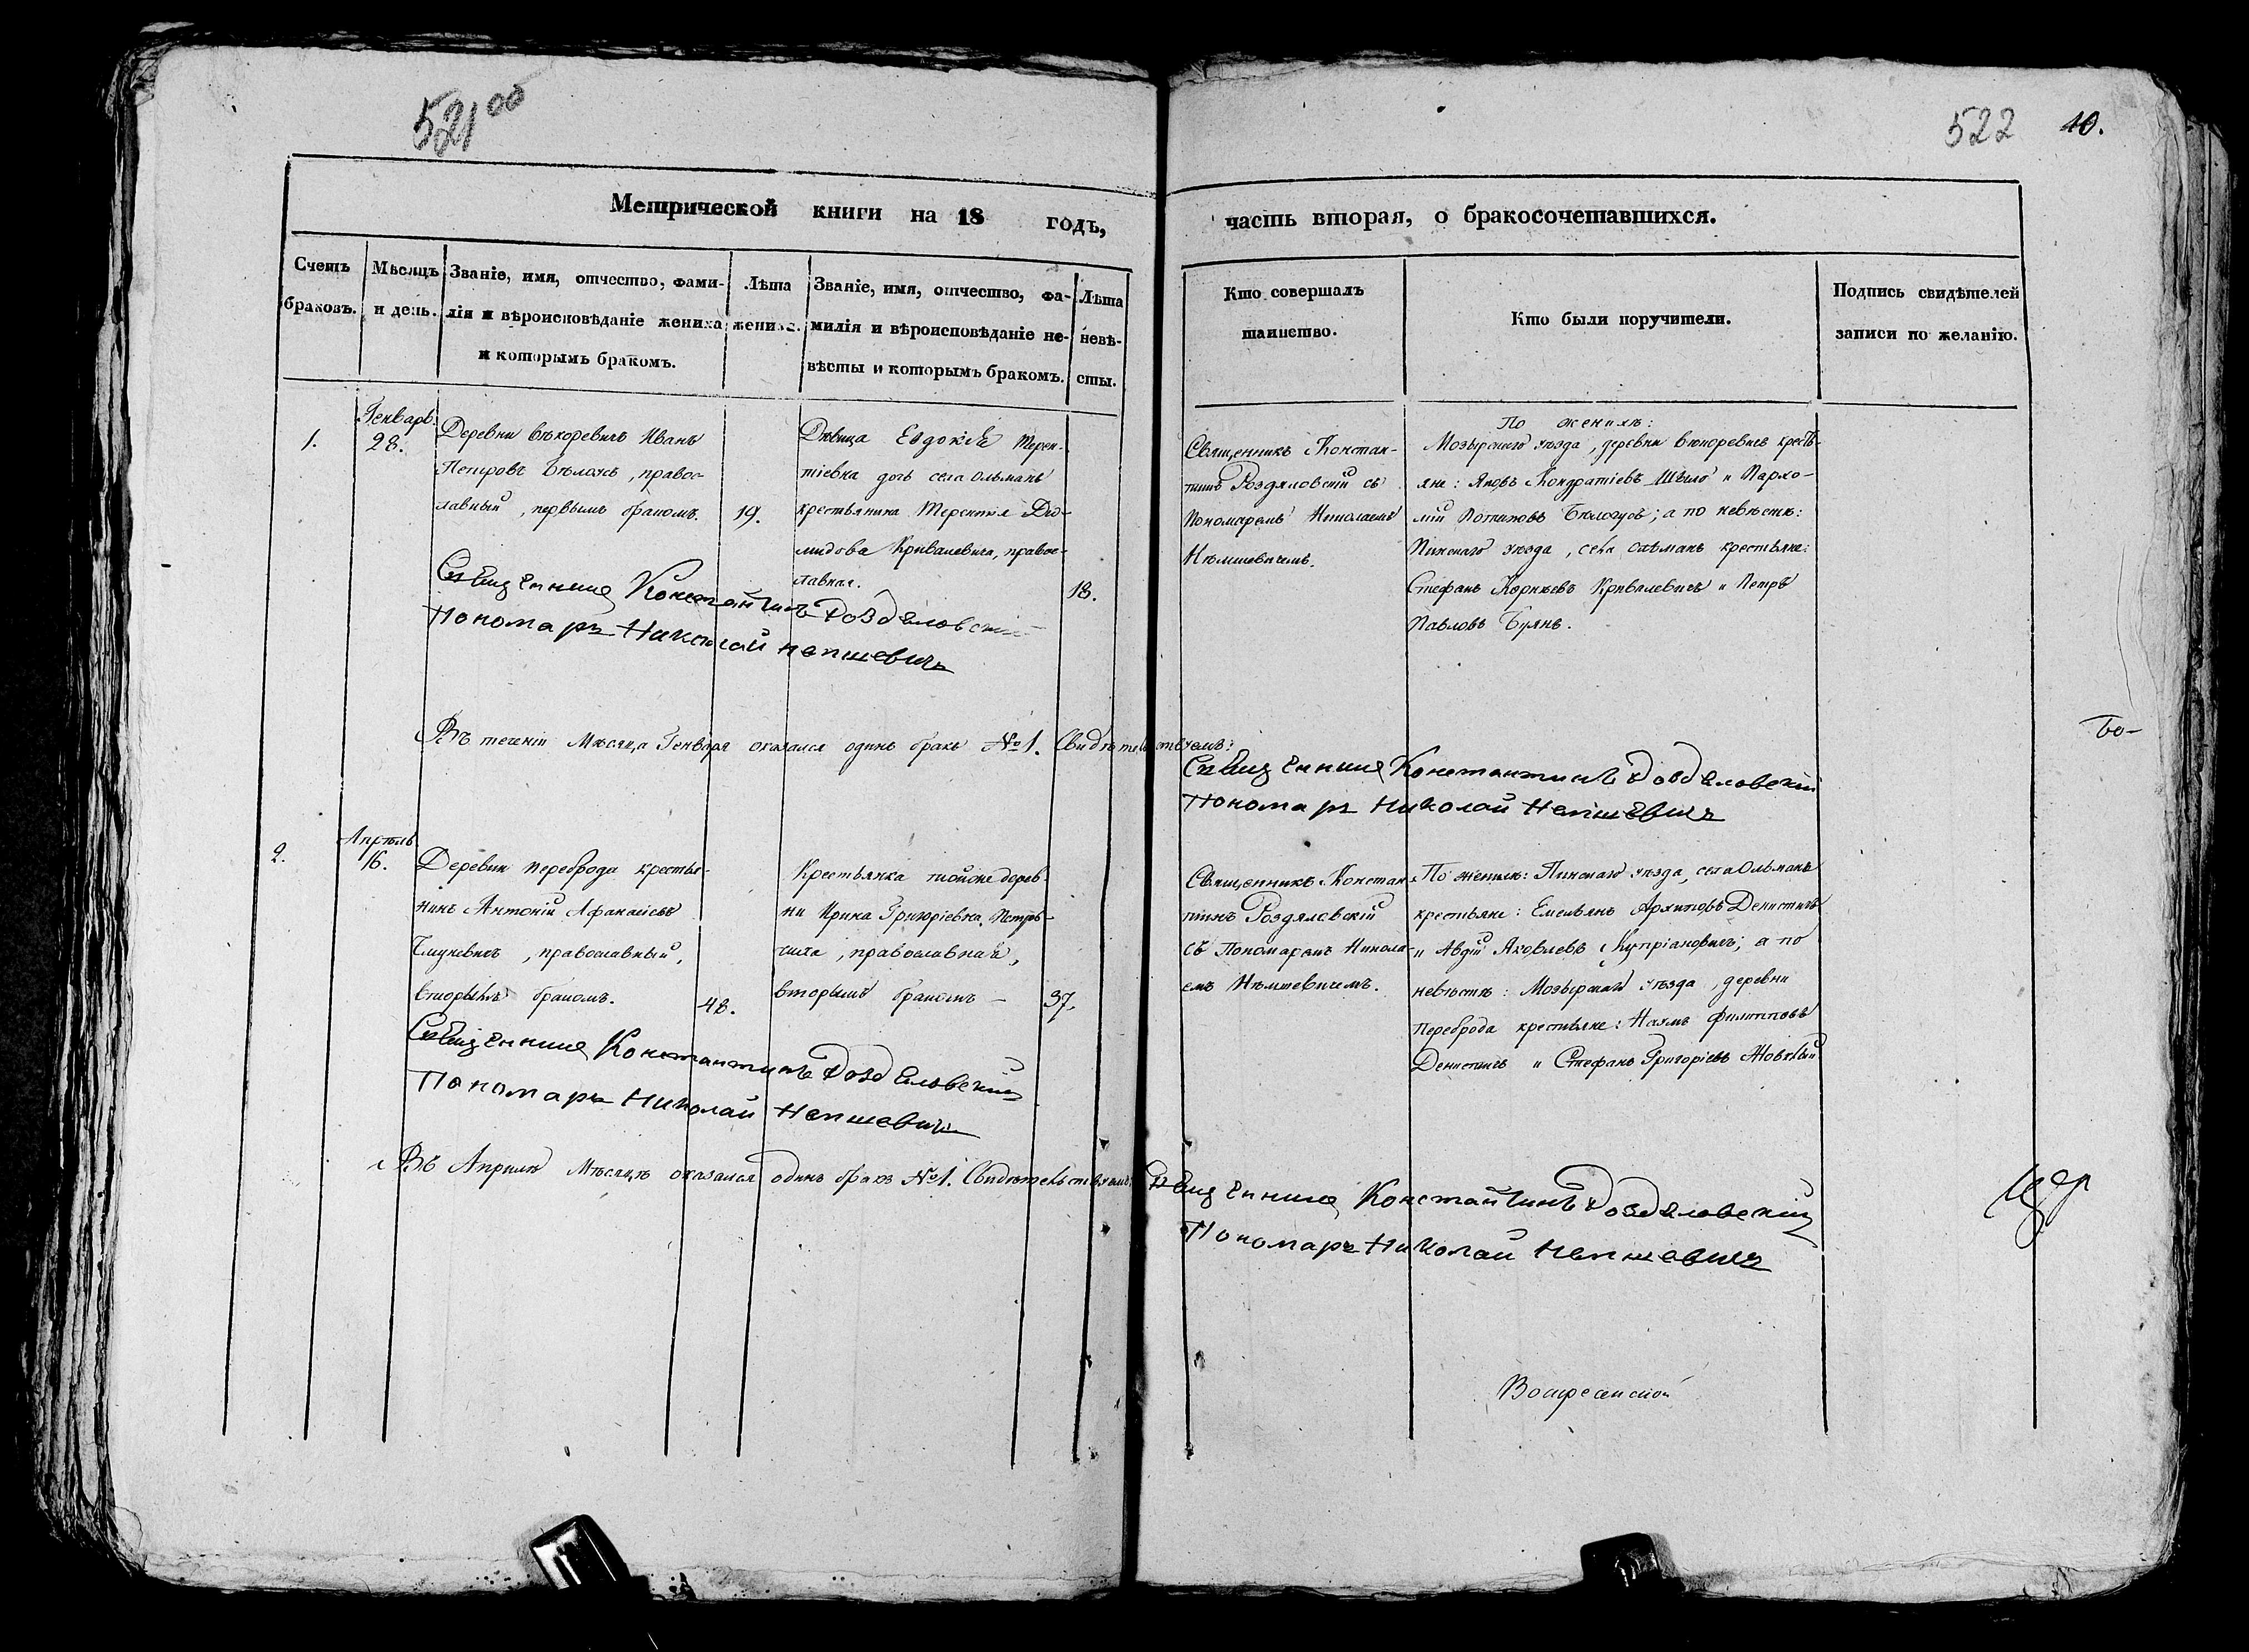 521 об
522 10.
Метрической книги на 18 годъ,
часть вторая, о бракосочетавшихся.
Счетъ
браковъ.
Мѣсяцъ
и день.
Званіе, имя, отчество, фами-
лія и вѣроисповѣданіе жениха
и которымъ бракомъ.
Лѣта
жениха.
Званіе, имя, отчество, фа-
милія и вѣроисповѣданіе не-
вѣсты и которымъ бракомъ.
Лѣта
невѣ-
сты.
Кто совершалъ
таинство.
Кто были поручители.
Подпись свидѣтелей
записи по желанію.
1.
Генварь
28.
Деревни Иванъ
Петровъ , правос-
лавный, первымъ бракомъ.
19.
Дѣвица Евдокія Терен-
тіевна дочь села Ольманъ
крестьянина Терентія Діо-
мидова Кривалевича, правос-
лавная.
18.
Священникъ Констан-
тинъ Роздяловскій съ
Пономаремъ Николаемъ
Нѣмшевичемъ.
По женихѣ:
Мозырскаго уѣзда, деревни крестья-
яне: Яковъ Кондратіевъ Шило и Пархо-
мій Бѣлоусъ; а по невѣстѣ:
Пинскаго уѣзда, села Ольманъ крестьяне:
Стефанъ Корнѣевъ Кривалевичъ и Петръ
Павловъ Буянъ.
Священникъ Константинъ Роздяловскій
Пономарь Николай Немшевичъ
Въ теченіи Мѣсяца Генваря оказался одинъ бракъ №1. Свидѣтельствуемъ:
Священникъ Константинъ Роздяловскій
Пономарь Николай Немшевичъ
Бо-
2.
Апрѣль
16.
Деревни Переброда крестья-
нинъ Антоній Афанасіевъ
, православный,
вторымъ бракомъ.
48.
Крестьянка тойже дерев-
ни Ирина Григоріевна Петрв-
чиха, православная,
вторымъ бракомъ –
37.
Священникъ Констан-
тинъ Роздяловскій
съ Пономаремъ Никола-
емъ Нѣмшевичемъ.
По женихѣ: Пинскаго уѣзда, села Ольманъ
крестьяне: Емельянъ Архиповъ Денисчичъ
и Авдій Яковлевъ Купріановичъ; а по
невѣстѣ: Мозырскаго уѣзда, деревни
Переброда крестьяне: Наумъ Филипповъ
Денисчичъ и Стефанъ Григоріевъ
Священникъ Константинъ Роздяловскій
Пономарь Николай Немшевичъ
Въ Апрѣлѣ Мѣсяцѣ оказался одинъ бракъ №1. Свидѣтельствуемъ:
Священникъ Константинъ Роздяловскій
Пономарь Николай Немшевичъ
Воскресенской